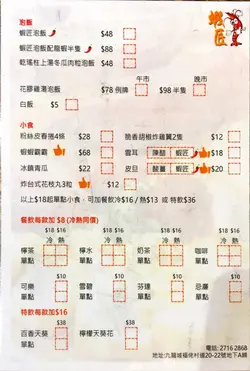 泡飯
蝦匠
蝦匠泡飯 $48
蝦匠泡飯配龍蝦半隻 $88
乾瑤柱上湯冬瓜肉粒泡飯 $48
午市 晚市
花膠雞湯泡飯 $78 例牌 $98 半隻
白飯 $5
小食
粉絲皮春捲4條 $28 脆香胡椒炸雞翼2隻 $12
蝦蝦霸霸 $68 雲耳 陳醋 蝦匠 $18
冰鎮青瓜 $22 皮旦 酸薑 蝦匠 $20
炸台式花枝丸3粒 $12
以上$18起單點小食，可加餐飲冷$16 / 熱$13 或 特飲$36
餐飲每款加 $8 (冷熱同價)
$18 $16 $18 $16 $18 $16 $18 $16
冷 熱 冷 熱 冷 熱 冷 熱
檸茶 檸水 奶茶 咖啡
單點 單點 單點 單點
$10 $10 $10 $10
可樂 雪碧 芬達 忌廉
單點 單點 單點 單點
特飲每款加$16
$38 $38
百香天葵 檸檬天葵花
單點
電話: 2716 2868
地址:九龍城福佬村道20-22號地下A鋪